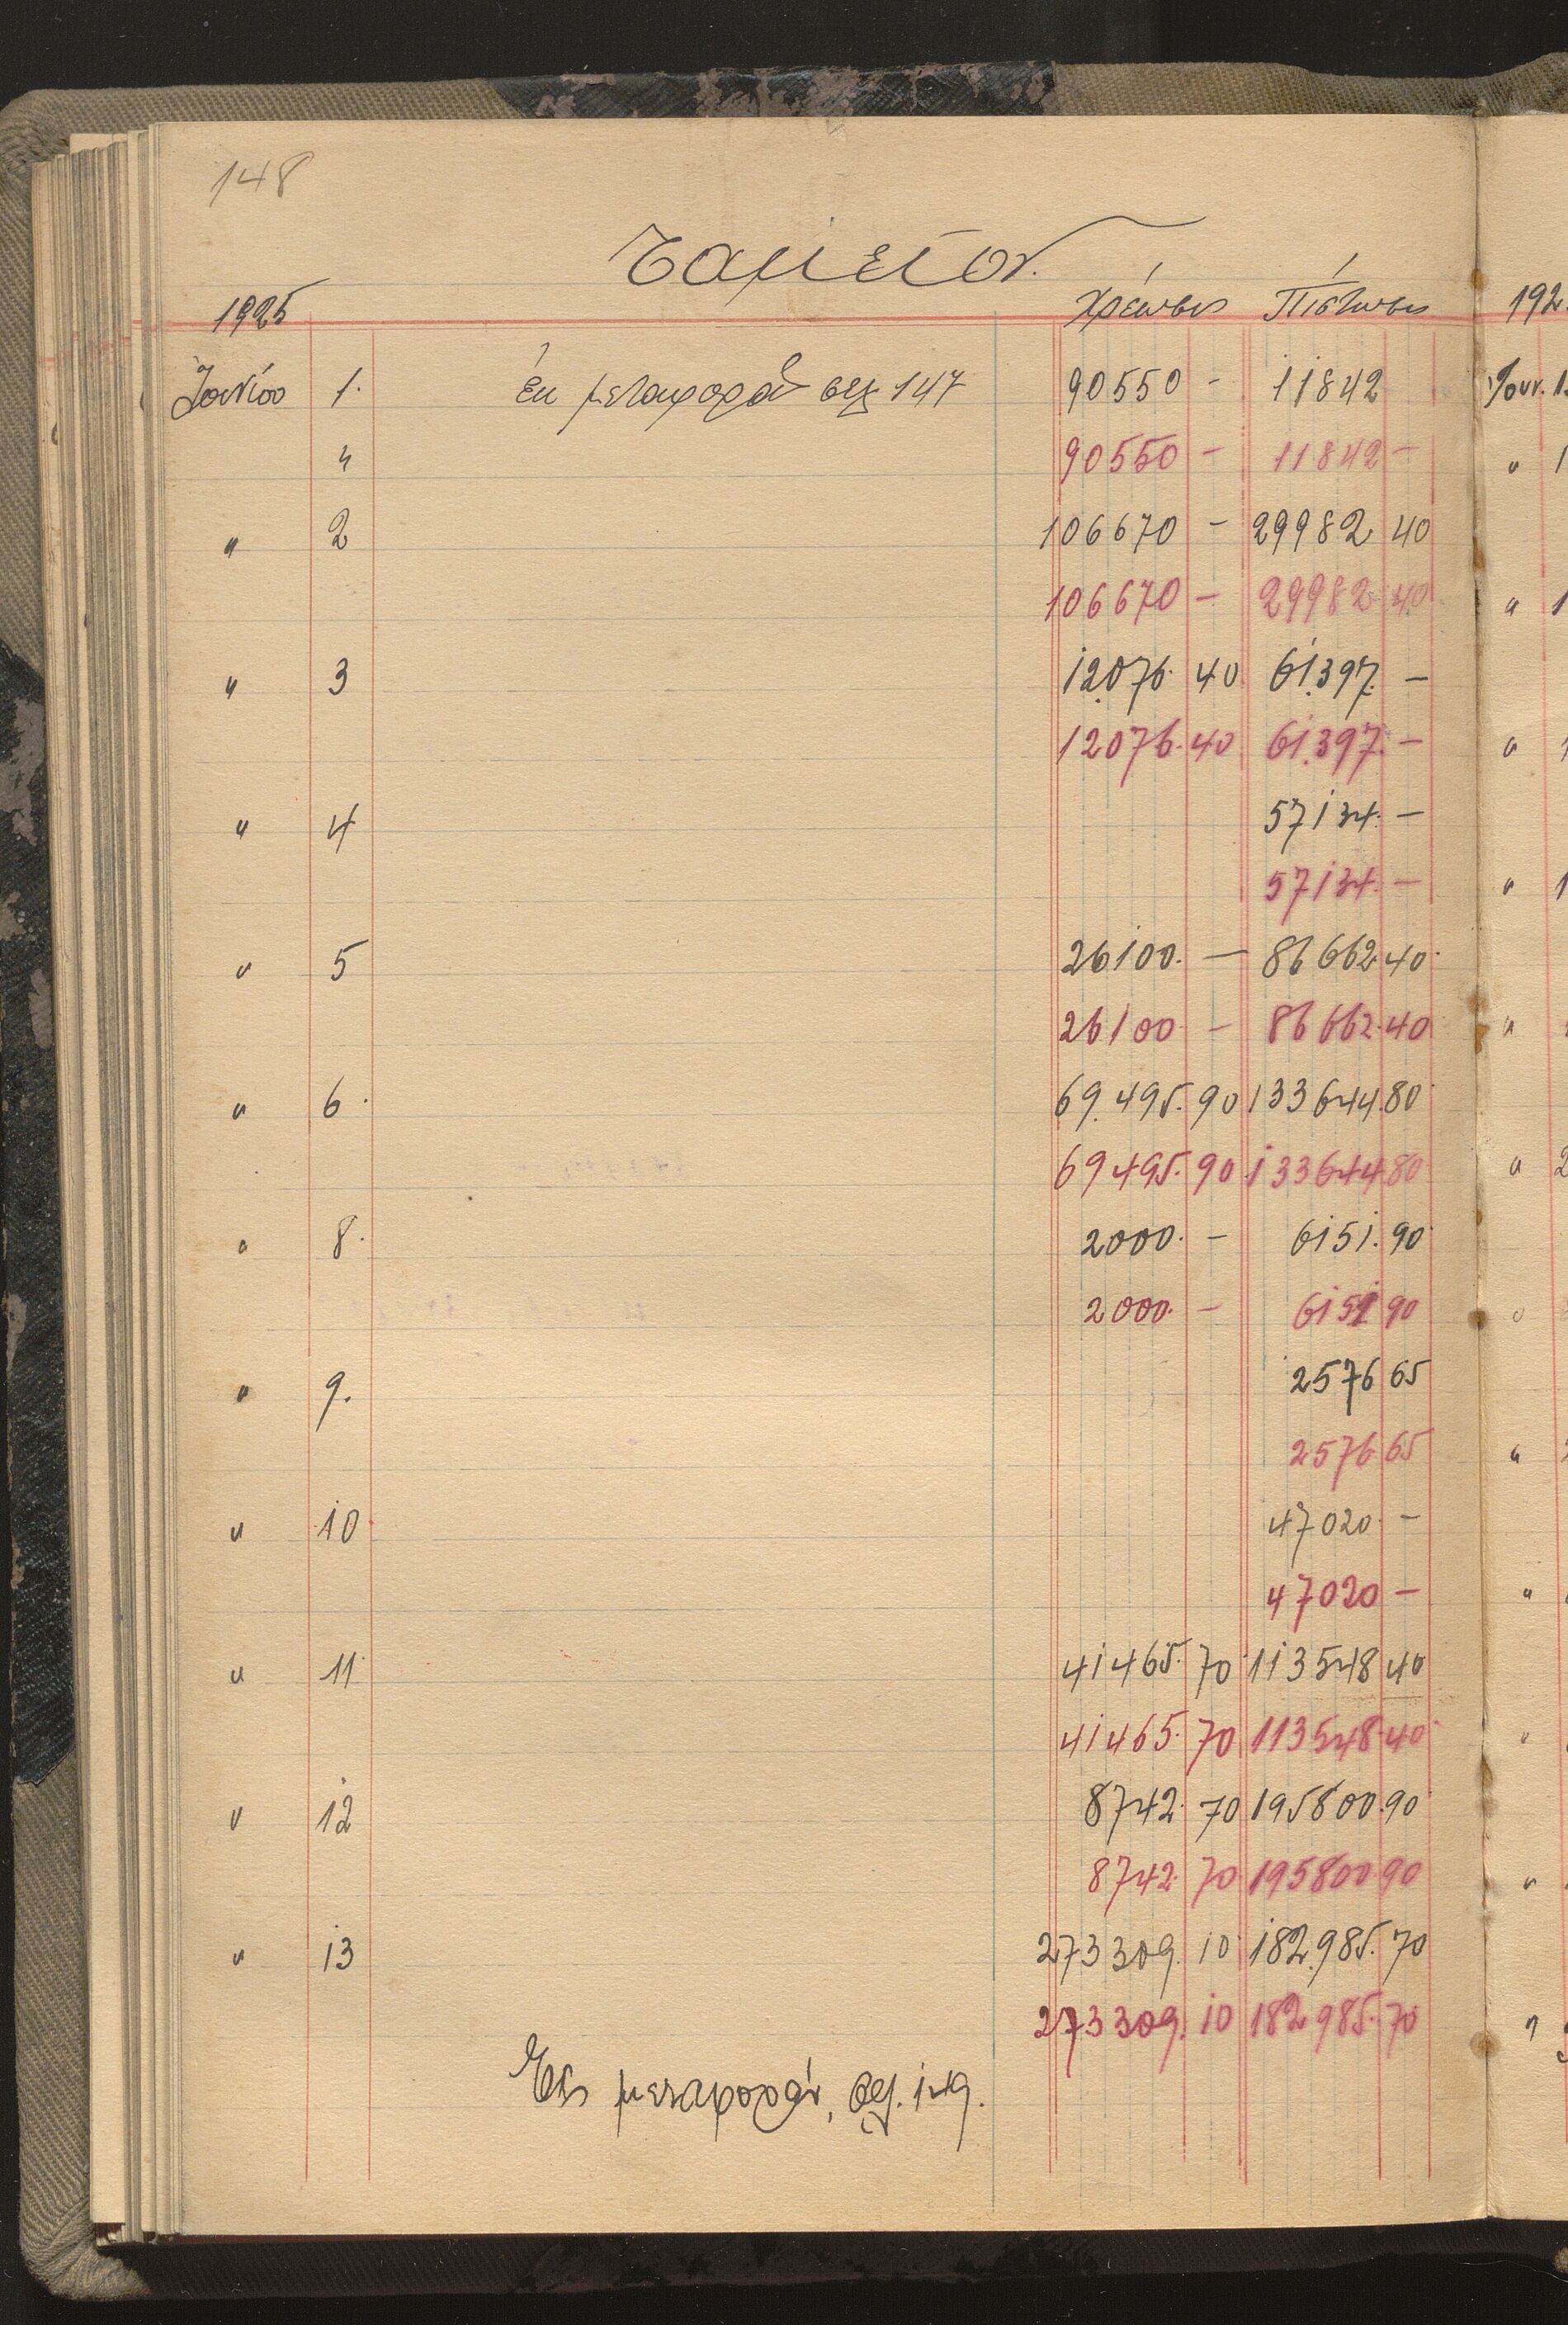 148
Ταμεῖον.
1925 Χρέωσις Πίστωσις
Ἰουνίου 1. ἐκ μεταφορᾶς σελ 147 90550 - 11842
" 90550 - 11842 -
" 2 106670 - 29982 40
106670 - 29982 40
" 3 12.076. 40 61.397. -
12076. 40 61.397. -
" 4 57134. -
57134. -
" 5 26100. - 86662 40.
26100 - 86662. 40
" 6. 69.495. 90 133644. 80
69495. 90 133644. 80
" 8. 2000. - 6151. 90
2000. - 6151 90
" 9. 2576 65
2576 65
" 10 47020 -
47020 -
" 11 41465. 70 113548 40
41465. 70 113548. 40
" 12 8742. 70 195800. 90
8742. 70 195800. 90
" 13 273309. 10 182.985. 70
273309. 10 182985. 70
Εἰς μεταφοράν, σελ. 149.
192
Ἰουν. 1